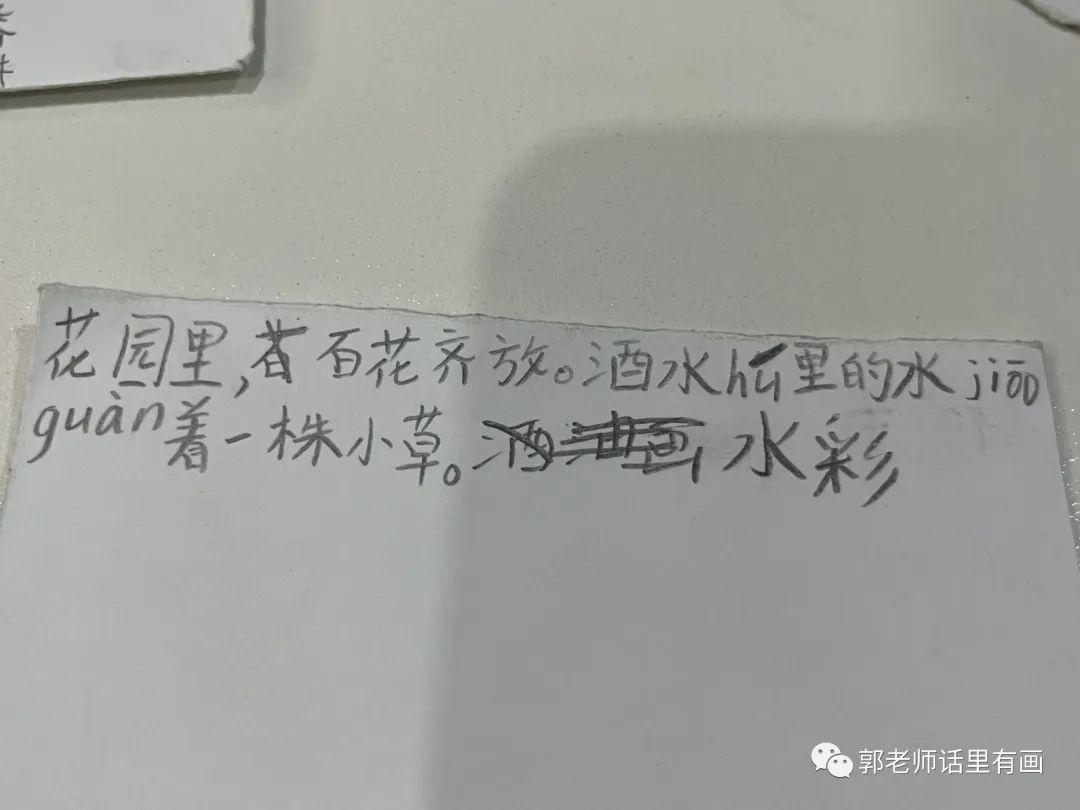 花园里,百花齐放。酒水hú里的水jiāo
guàn着一株小草。水彩
郭老师话里有画